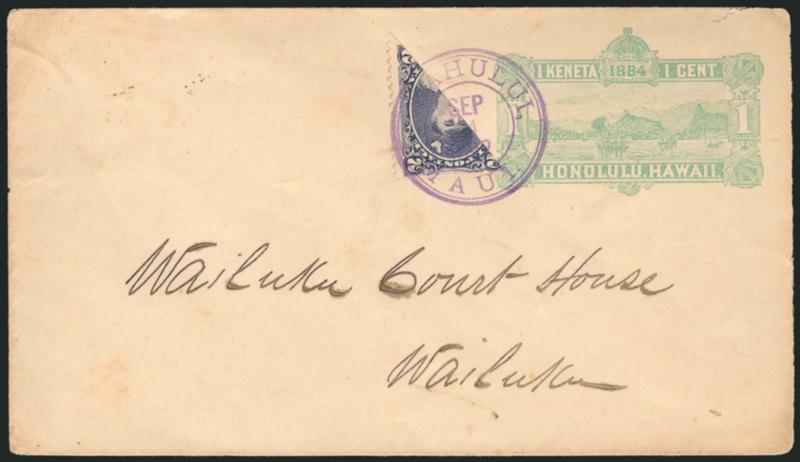 1 KENETA 1884 1 CENT
1
HONOLULU, HAWAII.
AHULUI,
SEP
MAUI
Wailuku Court House
Wailuku